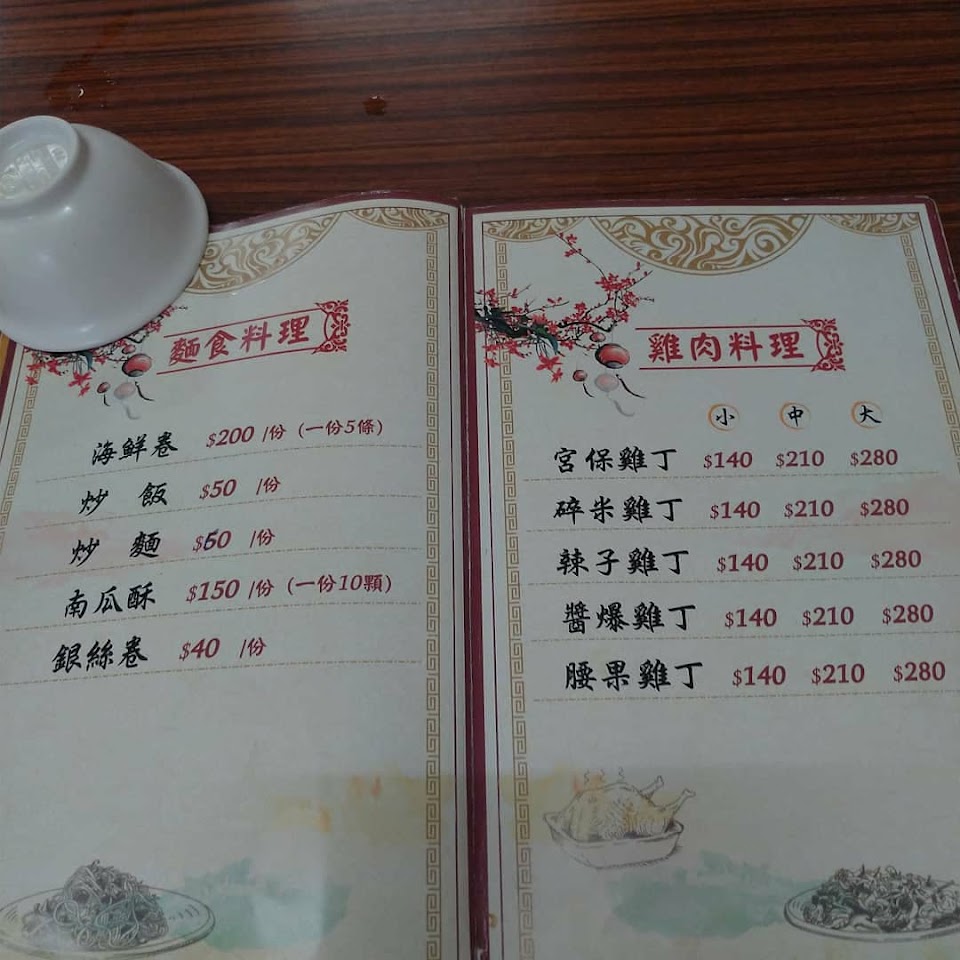 麵食料理
海鮮卷 $200 /份 (一份5條)
炒 飯 $50 /份
炒 麵 $60 /份
南瓜酥 $150 /份 (一份10顆)
銀絲卷 $40 /份
雞肉料理
小 中 大
宮保雞丁 $140 $210 $280
碎米雞丁 $140 $210 $280
辣子雞丁 $140 $210 $280
醬爆雞丁 $140 $210 $280
腰果雞丁 $140 $210 $280